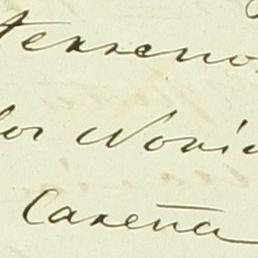 terreno
los Novi
Careña